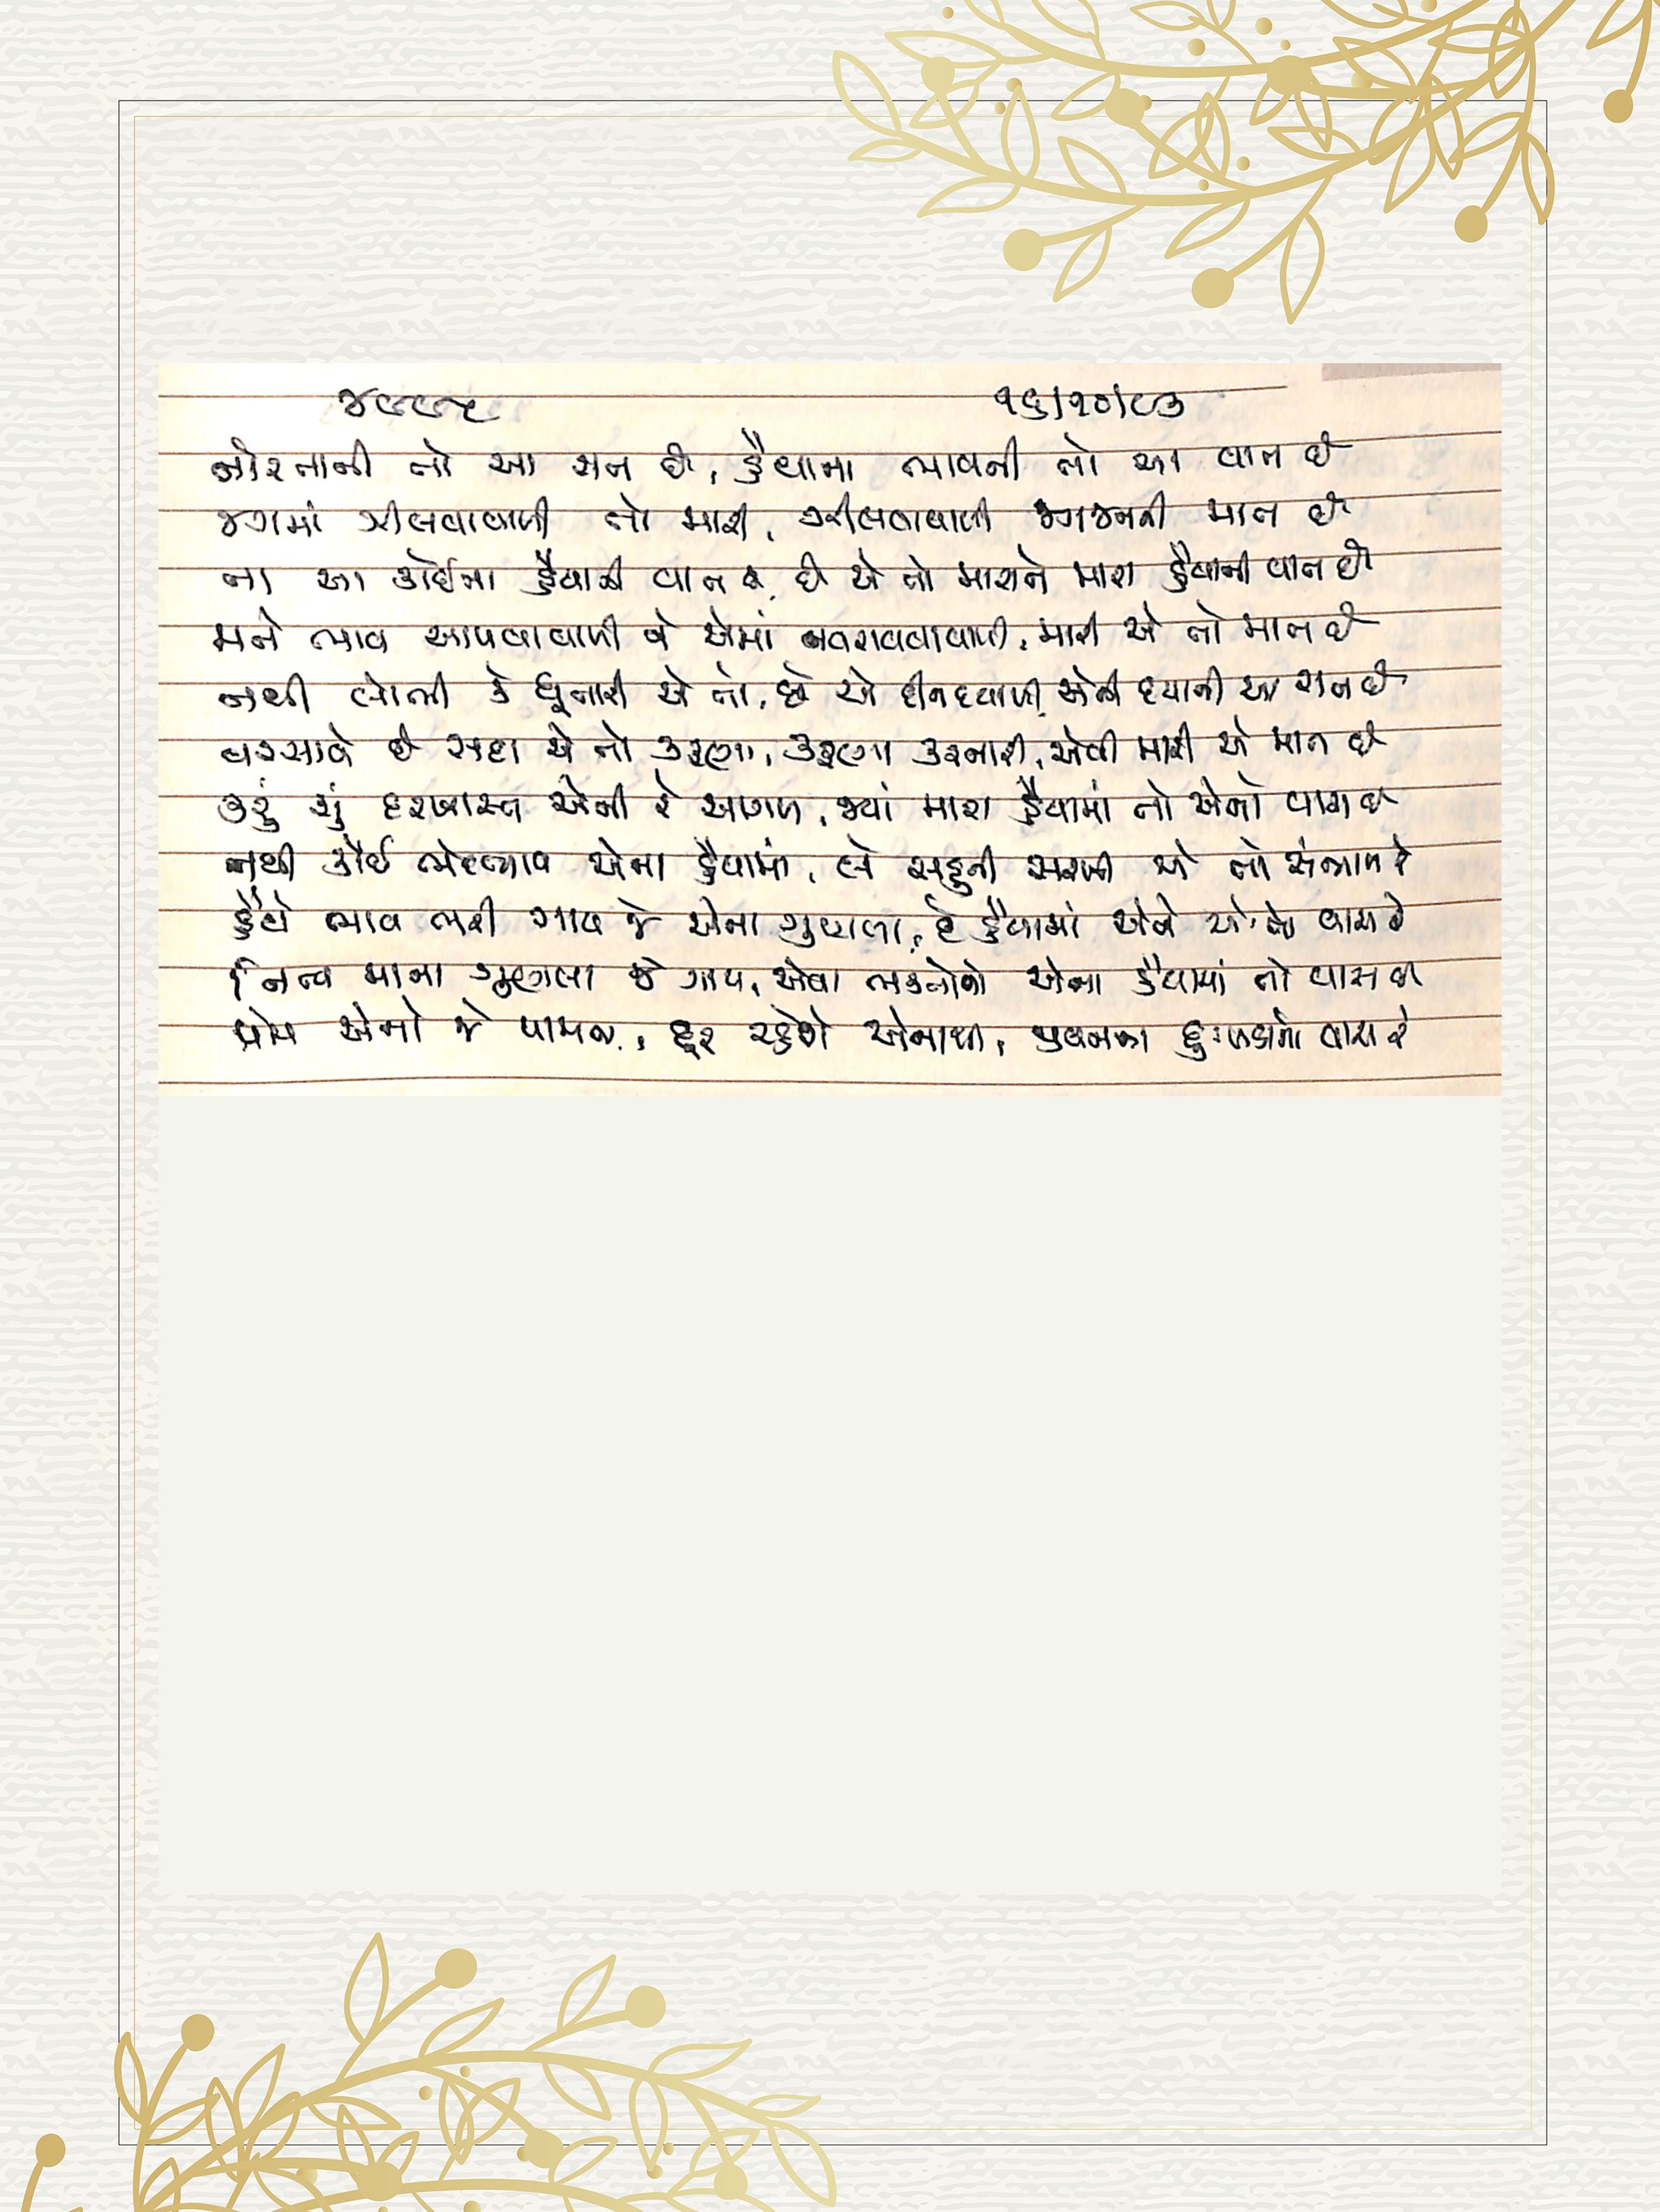 ૧૬/૧૦/૮૩
નોરતાની તો આ રાત છે, હૈયાના ભાવની તો આ વાત છે
જગમાં ઝીલવાવાળી તો મારી, ઝીલવાવાળી જગજનની માત છે
ના આ કોઈના હૈયાની વાત છે એ તો મારાને મારા હૈયાની વાત છે
મને ભાવ આપવાવાળી ને એમાં નવરાવવાવાળી, મારી એ તો માત છે
નથી ભોળી કે ધૂતારી એ તો, છે એ દીનદયાળી, એની દયાની આ રાત છે
વરસાવે છે સદા એ તો કરુણા, કરુણા કરનારી, એવી મારી એ માત છે
કરું શું દરખાસ્ત એની રે આગળ, જ્યાં મારા હૈયામાં તો એનો વાસ છે
નથી કોઈ ભેદભાવ એના હૈયામાં, લે સહુની સરખી એ તો સંભાળ રે
હૈયે ભાવ ભરી ગાય જે એના ગુણલા, છે હૈયામાં એને વાસ રે
નિત્ય માના ગુણલા જે ગાય, એવા ભક્તોનો એના હૈયામાં તો વાસ
પ્રેમ એનો જે પામય, દૂર રહેશે એનાથી, દુઃખડાંનો વાસ રે